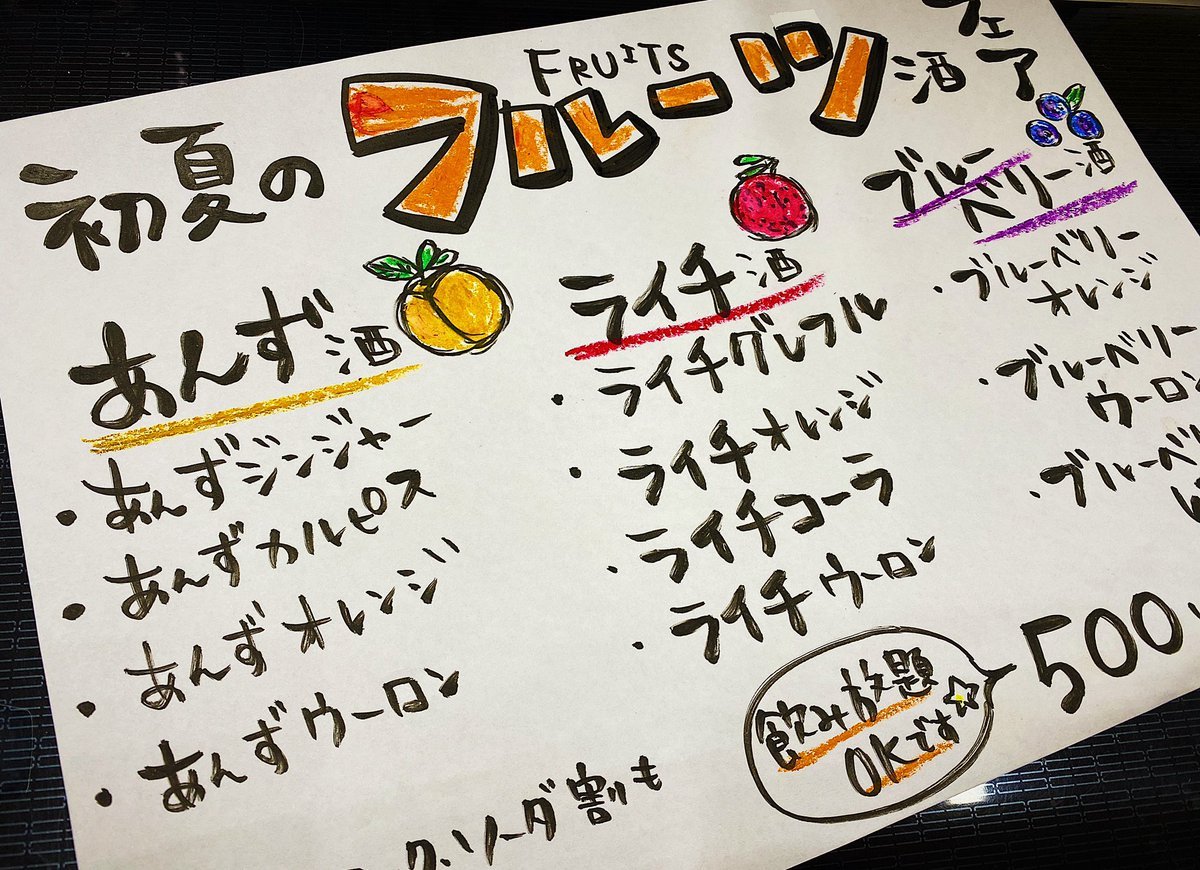 FRUITS
初夏のフルーツ酒フェア
あんず酒
・あんずジンジャー
・あんずカルピス
・あんずオレンジ
・あんずウーロン
ライチ酒
・ライチグレフル
・ライチオレンジ
・ライチコーラ
・ライチウーロン
ブルー
ベリー酒
・ブルーベリー
オレンジ
・ブルーベリー
ウーロン
・ブルーベ
500
飲み放題
OKです
ク、ソーダ割りも